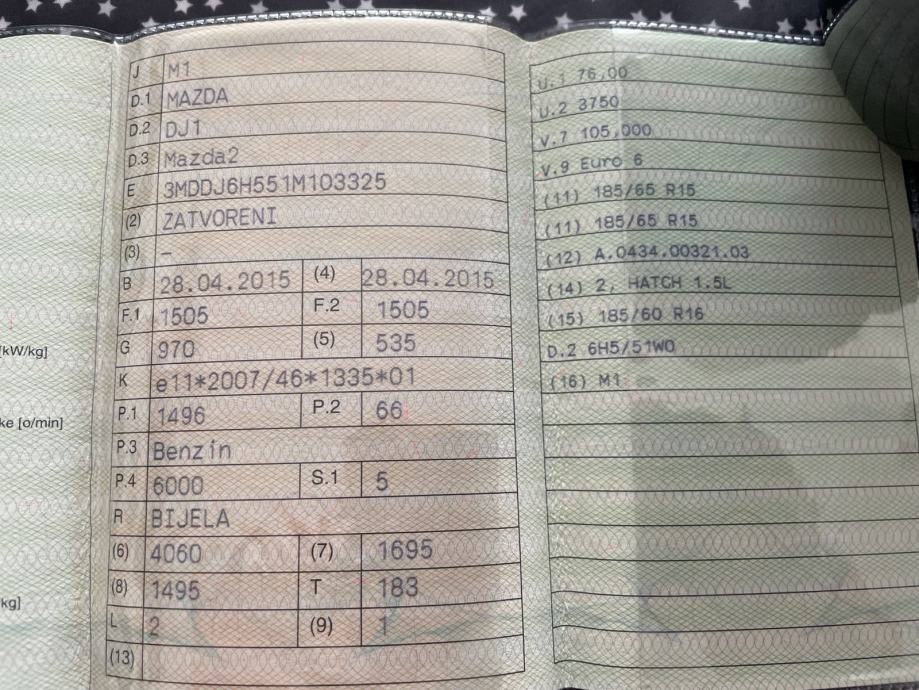 J M1
D.1 MAZDA
D.2 DJ1
D.3 Mazda2
E 3MDDJ6H551M103325
(2) ZATVORENI
(3) –
B 28.04.2015 (4) 28.04.2015
F.1 1505 F.2 1505
G 970 (5) 535
K e11*2007/46*1335*01
P.1 1496 P.2 66
P.3 Benzin
P.4 6000 S.1 5
R BIJELA
(6) 4060 (7) 1695
(8) 1495 T 183
L 2 (9) 1
(13)
U.1 76,00
U.2 3750
V.7 105,000
V.9 Euro 6
(11) 185/65 R15
(11) 185/65 R15
(12) A.0434.00321.03
(14) 2, HATCH 1.5L
(15) 185/60 R16
D.2 6H5/51W0
(16) M1
[kW/kg]
ke [o/min]
kg]